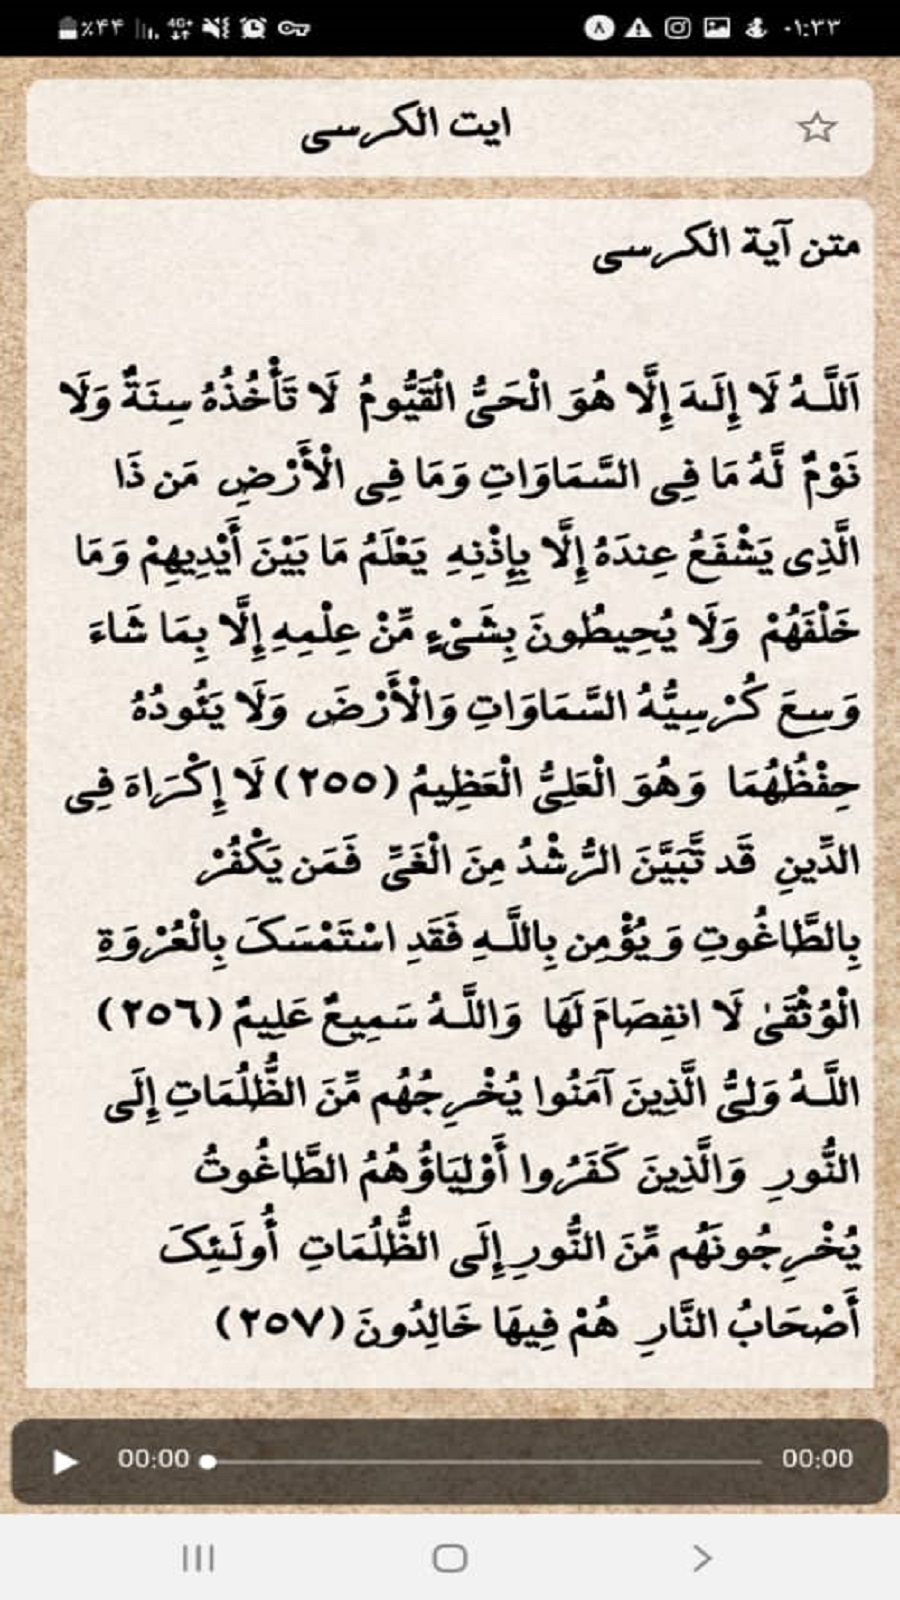 ٪۴۴ 4G+ ۰۱:۳۳
ایت الکرسی
متن آیة الکرسی
اَللَّـهُ لَا إِلَـٰهَ إِلَّا هُوَ الْحَیُّ الْقَیُّومُ لَا تَأْخُذُهُ سِنَةٌ وَلَا
نَوْمٌ لَّهُ مَا فِی السَّمَاوَاتِ وَمَا فِی الْأَرْضِ مَن ذَا
الَّذِی یَشْفَعُ عِندَهُ إِلَّا بِإِذْنِهِ یَعْلَمُ مَا بَیْنَ أَیْدِیهِمْ وَمَا
خَلْفَهُمْ وَلَا یُحِیطُونَ بِشَیْءٍ مِّنْ عِلْمِهِ إِلَّا بِمَا شَاءَ
وَسِعَ کُرْسِیُّهُ السَّمَاوَاتِ وَالْأَرْضَ وَلَا یَئُودُهُ
حِفْظُهُمَا وَهُوَ الْعَلِیُّ الْعَظِیمُ (۲۵۵) لَا إِکْرَاهَ فِی
الدِّینِ قَد تَّبَیَّنَ الرُّشْدُ مِنَ الْغَیِّ فَمَن یَکْفُرْ
بِالطَّاغُوتِ وَ یُؤْمِن بِاللَّـهِ فَقَدِ اسْتَمْسَکَ بِالْعُرْوَةِ
الْوُثْقَىٰ لَا انفِصَامَ لَهَا وَاللَّـهُ سَمِیعٌ عَلِیمٌ (۲۵۶)
اللَّـهُ وَلِیُّ الَّذِینَ آمَنُوا یُخْرِجُهُم مِّنَ الظُّلُمَاتِ إِلَى
النُّورِ وَالَّذِینَ کَفَرُوا أَوْلِیَاؤُهُمُ الطَّاغُوتُ
یُخْرِجُونَهُم مِّنَ النُّورِ إِلَى الظُّلُمَاتِ أُولَـٰئِکَ
أَصْحَابُ النَّارِ هُمْ فِیهَا خَالِدُونَ (۲۵۷)
00:00 00:00